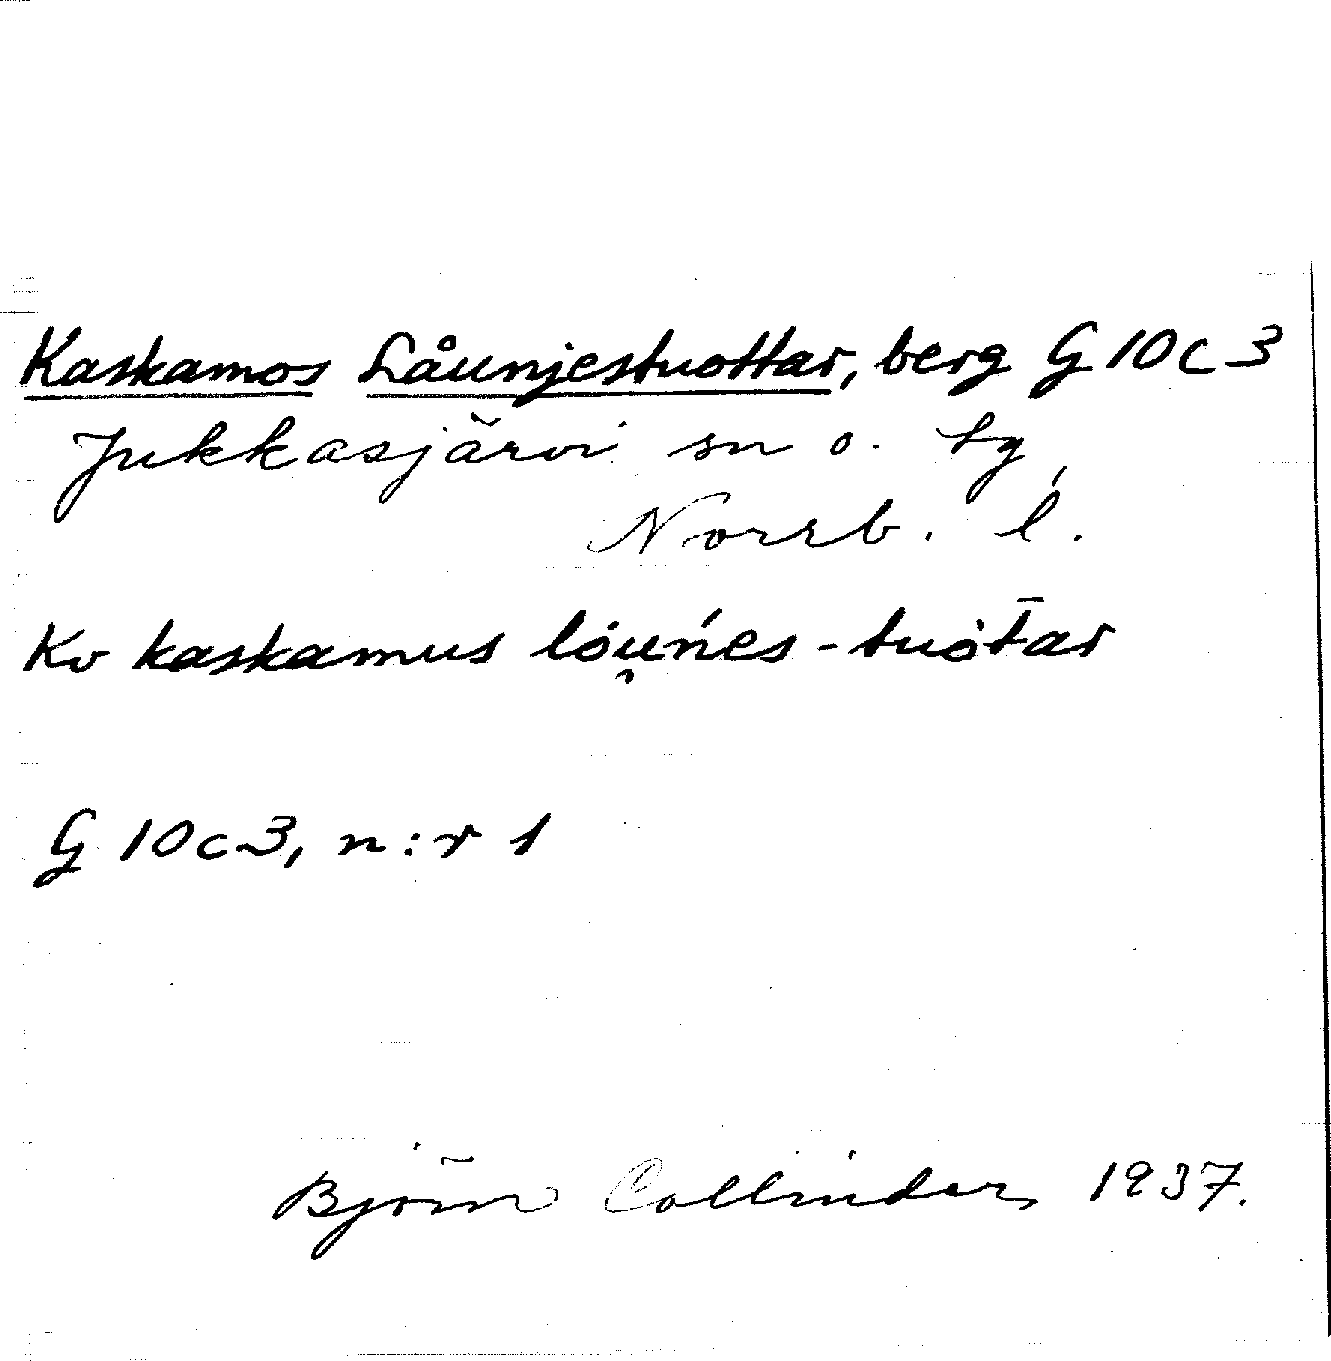 Kaskamos Låunjestuottar, berg G 10 c 3
Jukkasjärvi sn o. tg,
Norrb. l.
Kv kaskamus lóu̯ńes-tuòt̄ar
G 10 c 3, n:r 1
Björn Collinder 1937.